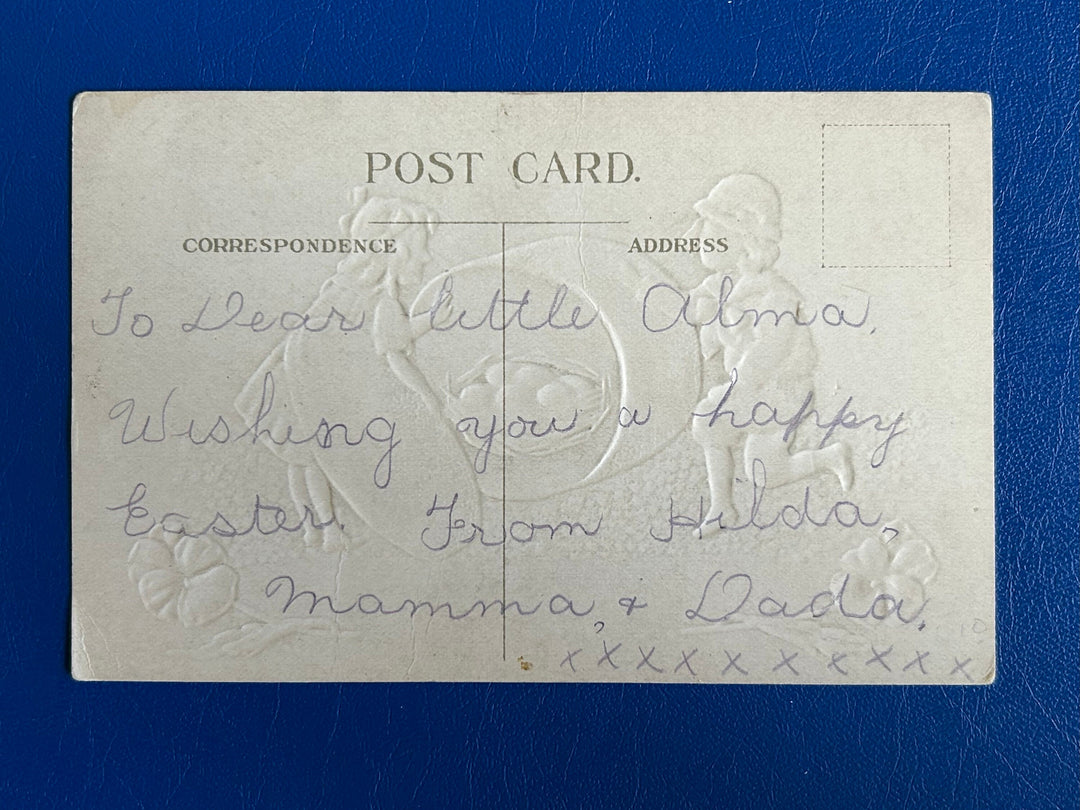 POST CARD.
CORRESPONDENCE
ADDRESS
To Dear little Alma.
Wishing you a happy
Easter. From Hilda,
Mamma, & Dada.
x x x x x x x x x x